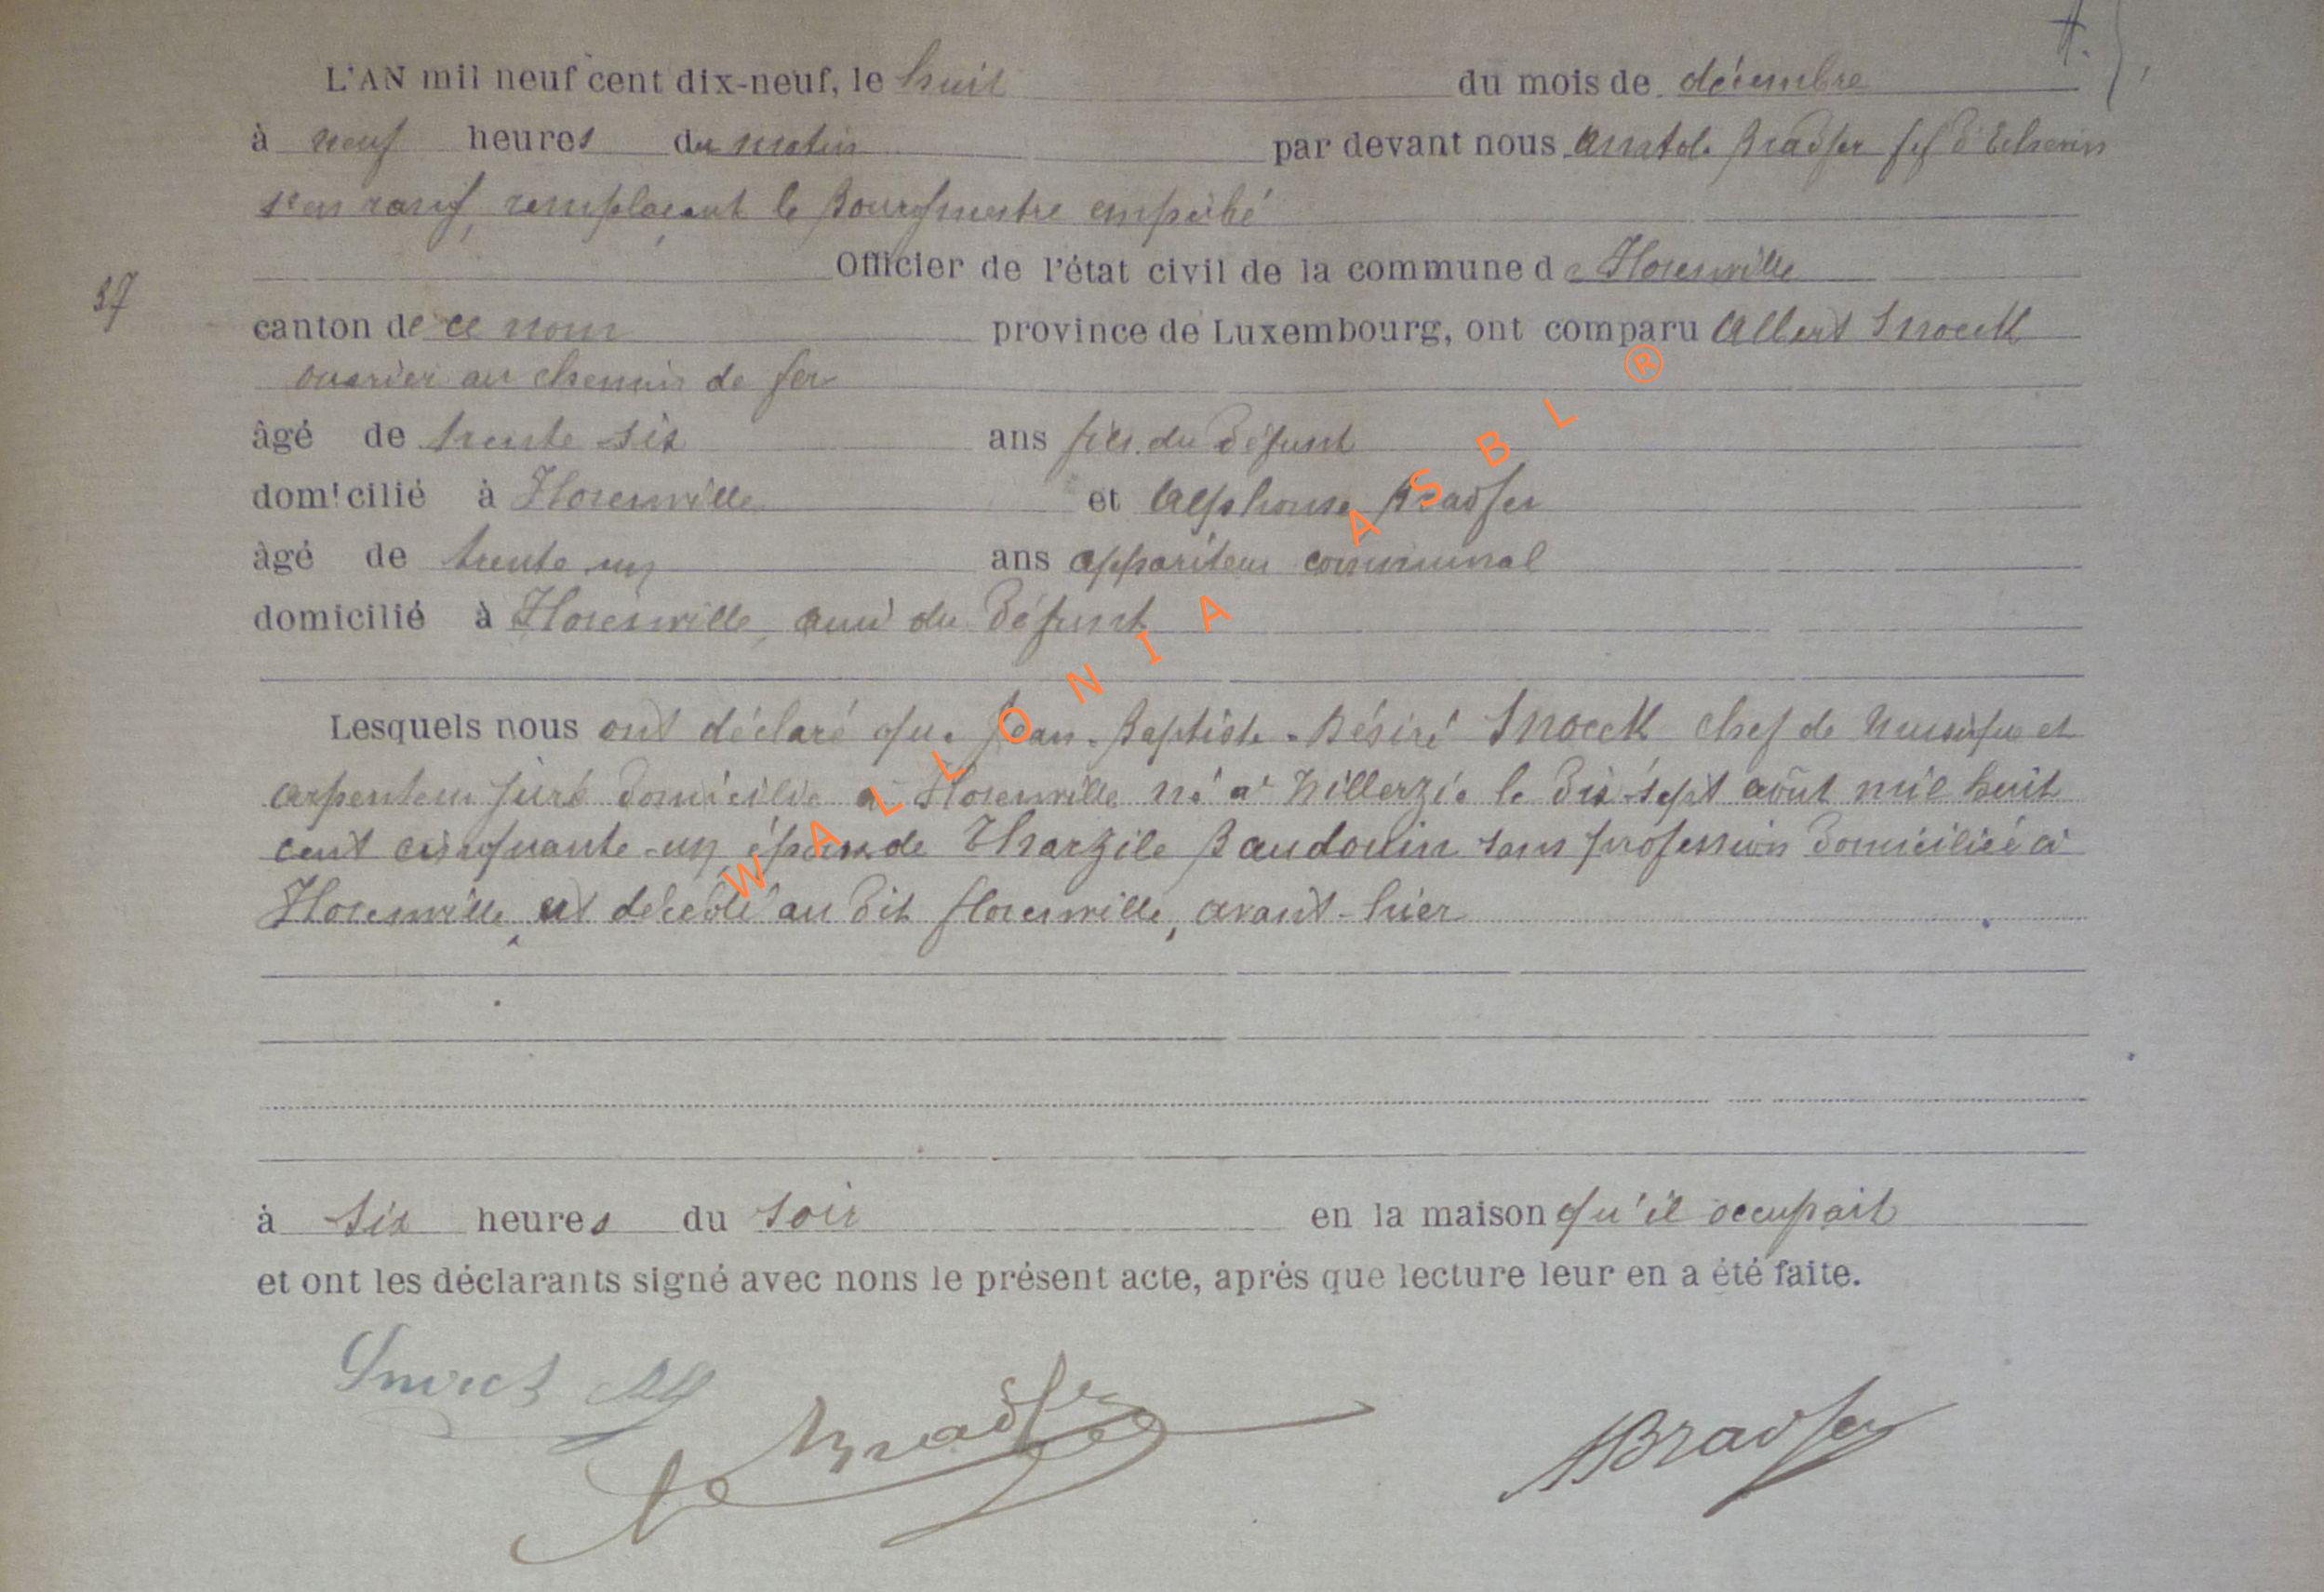 L'AN mil neuf cent dix-neuf, le huit du mois de décembre
à neuf heures du matin par devant nous Anatole Bradfer ff d'Echevin
remplaçant le Bourgmestre empêché
Officier de l'état civil de la commune de Florenville
37
canton de ce nom province de Luxembourg, ont comparu Albert Snoeck
ouvrier au chemin de fer
âgé de trente six ans fils du défunt
domicilié à Florenville et Alphonse Bradfer
âgé de trente un ans appariteur communal
domicilié à Florenville, ami du défunt
Lesquels nous ont déclaré que Jean-Baptiste-Désiré Snoeck chef de musique et
arpenteur juré domicilié à Florenville né à Willerzie le dix-sept août mil huit
cent cinquante-un, époux de Tharzile Baudouin sans profession domiciliée à
Florenville, est décédé au dit Florenville, avant-hier
à six heures du soir en la maison qu'il occupait
et ont les déclarants signé avec nons le présent acte, après que lecture leur en a été faite.
Snoeck Bradfer ABradfer
WALLONIA ASBL ®